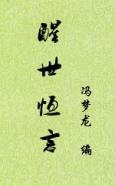 醒世恒言
冯梦龙 编